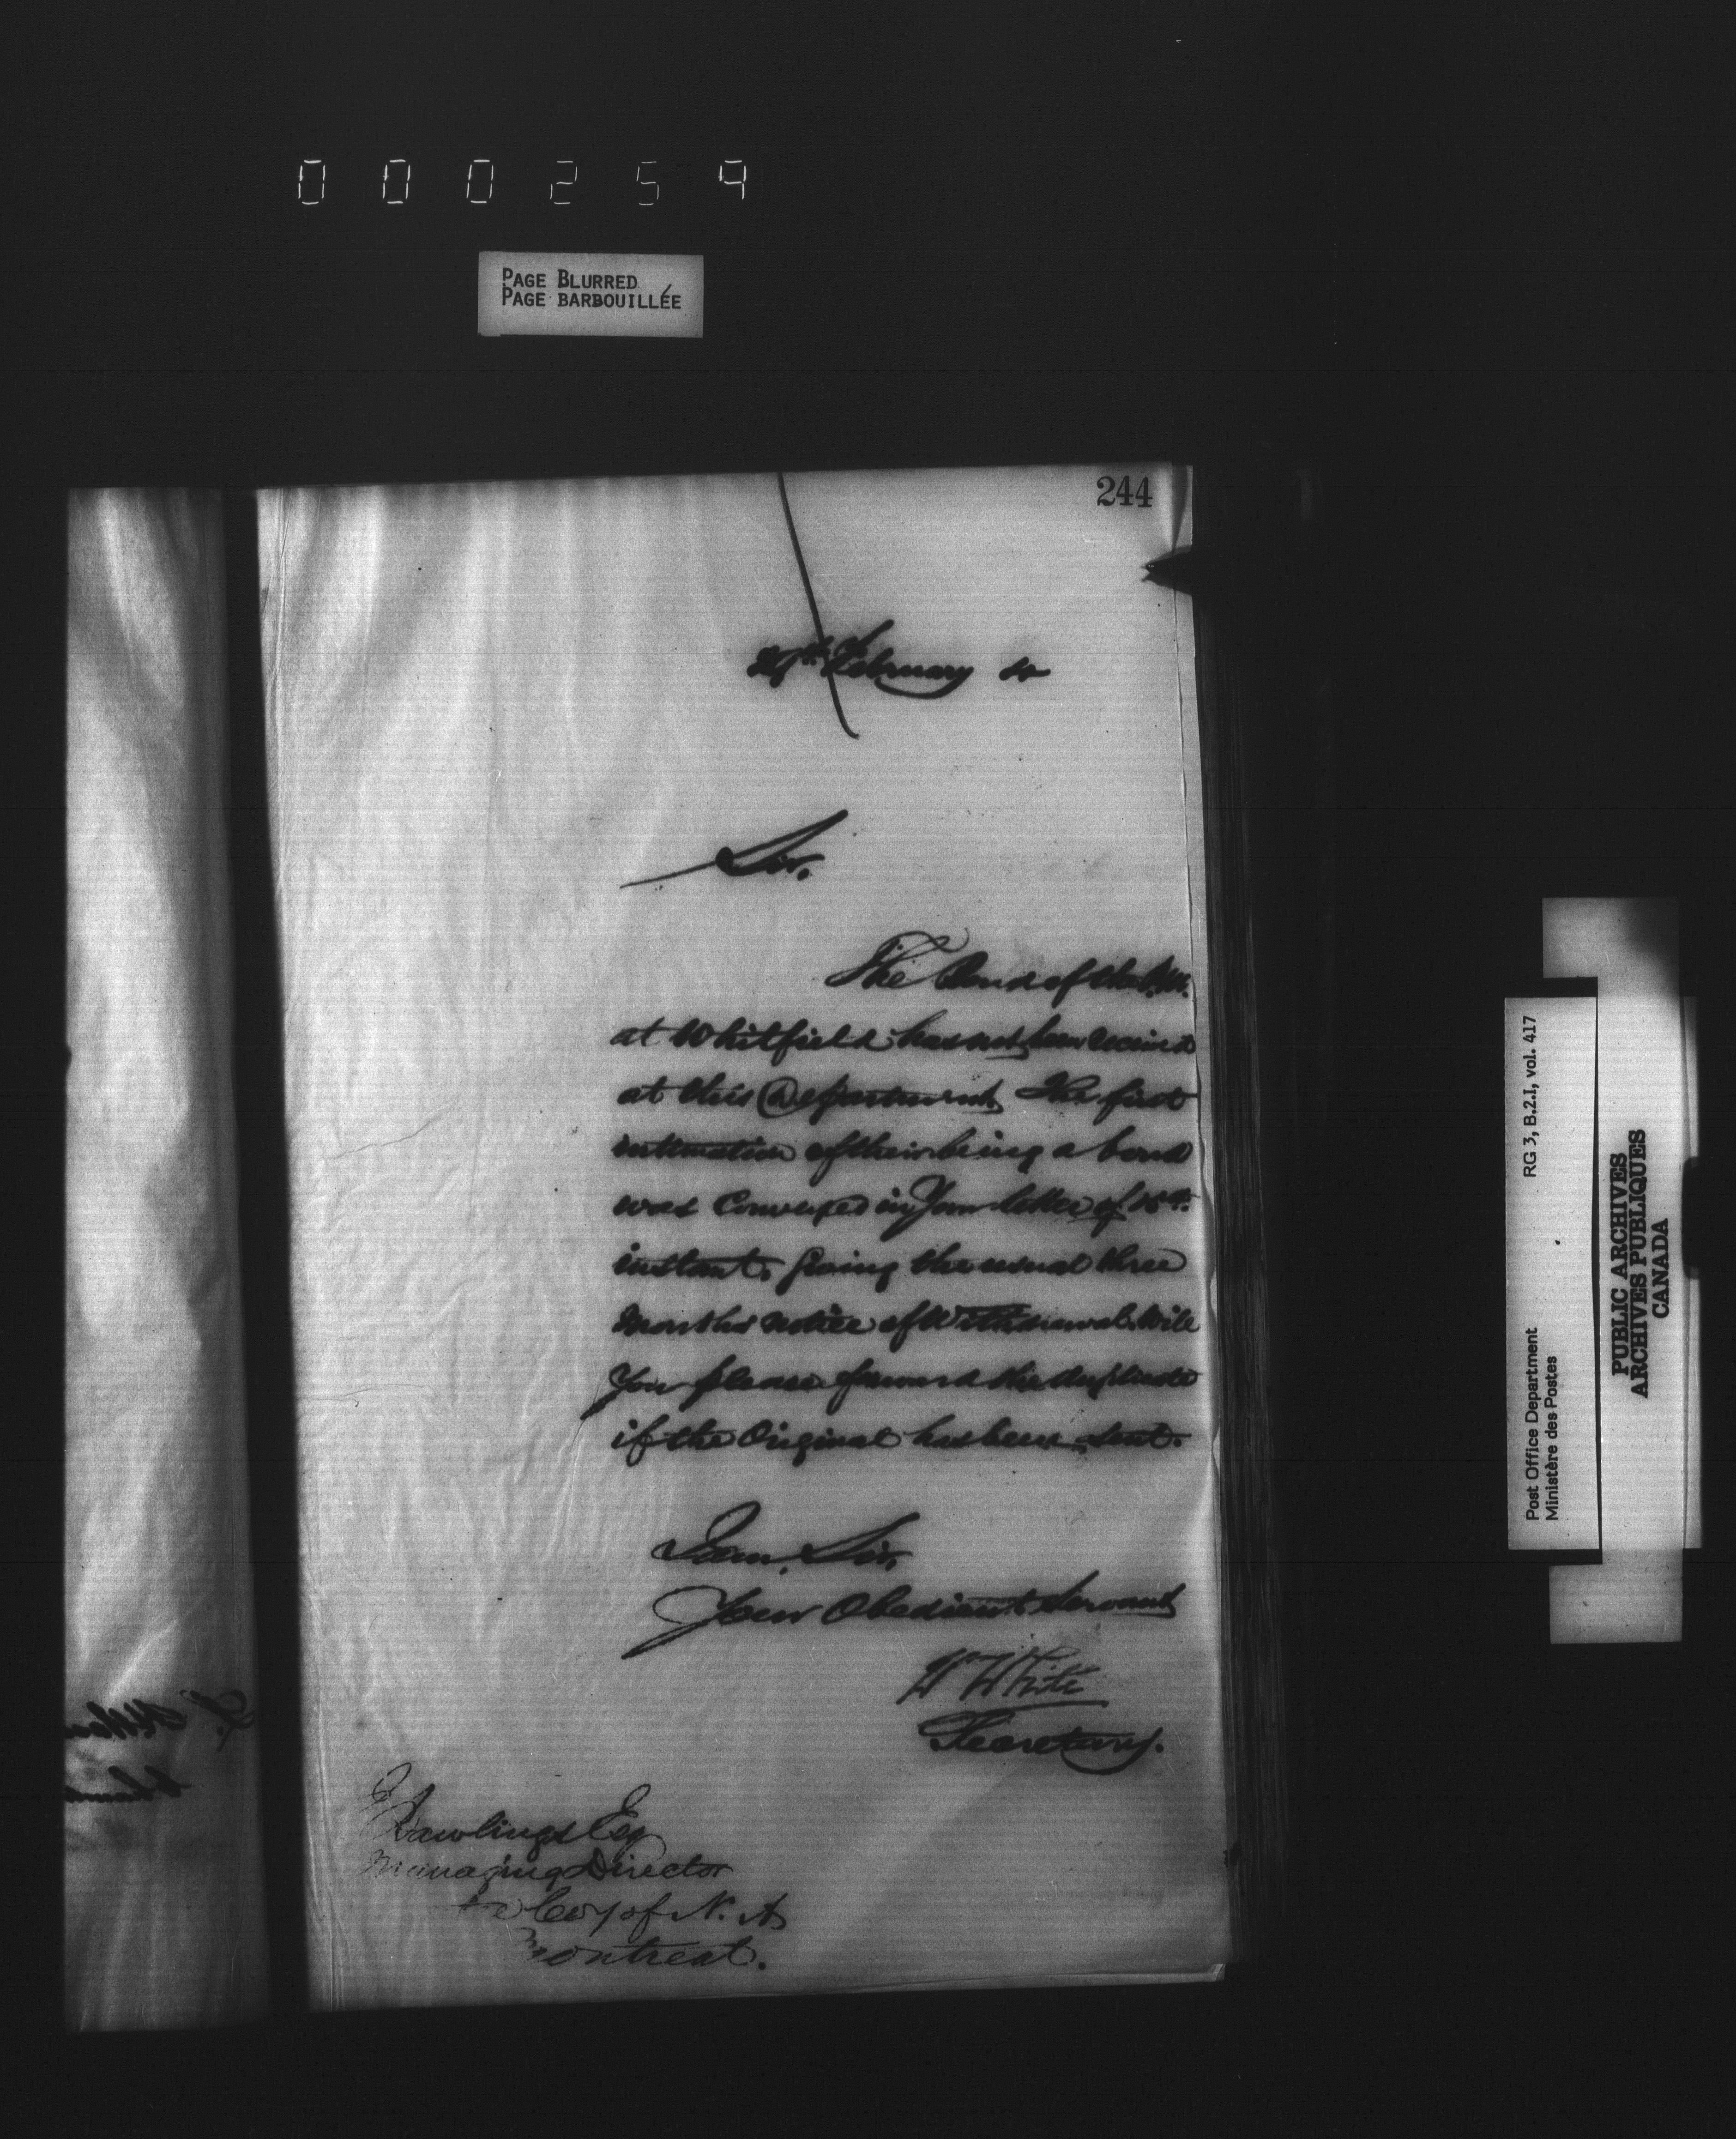 000259
PAGE BLURRED
PAGE BARBOUILLÉE
244
February
Sir.
The Bond of the P.M.
at Whitfield has not been received
at this Department. The first
intimation of their being a bond
was Conveyed in Your letter of 15th
instant, giving the usual three
Months notice of Withdrawal. Will
You please forward the duplicate
if the Original has been sent.
I am, Sir,
Your Obedient Servant
W White
Secretary.
E Rawlings Esq
Managing Director
Coy of N. A
Montreal.
Post Office Department RG 3, B.2.I, vol. 417
Ministère des Postes
PUBLIC ARCHIVES
ARCHIVES PUBLIQUES
CANADA